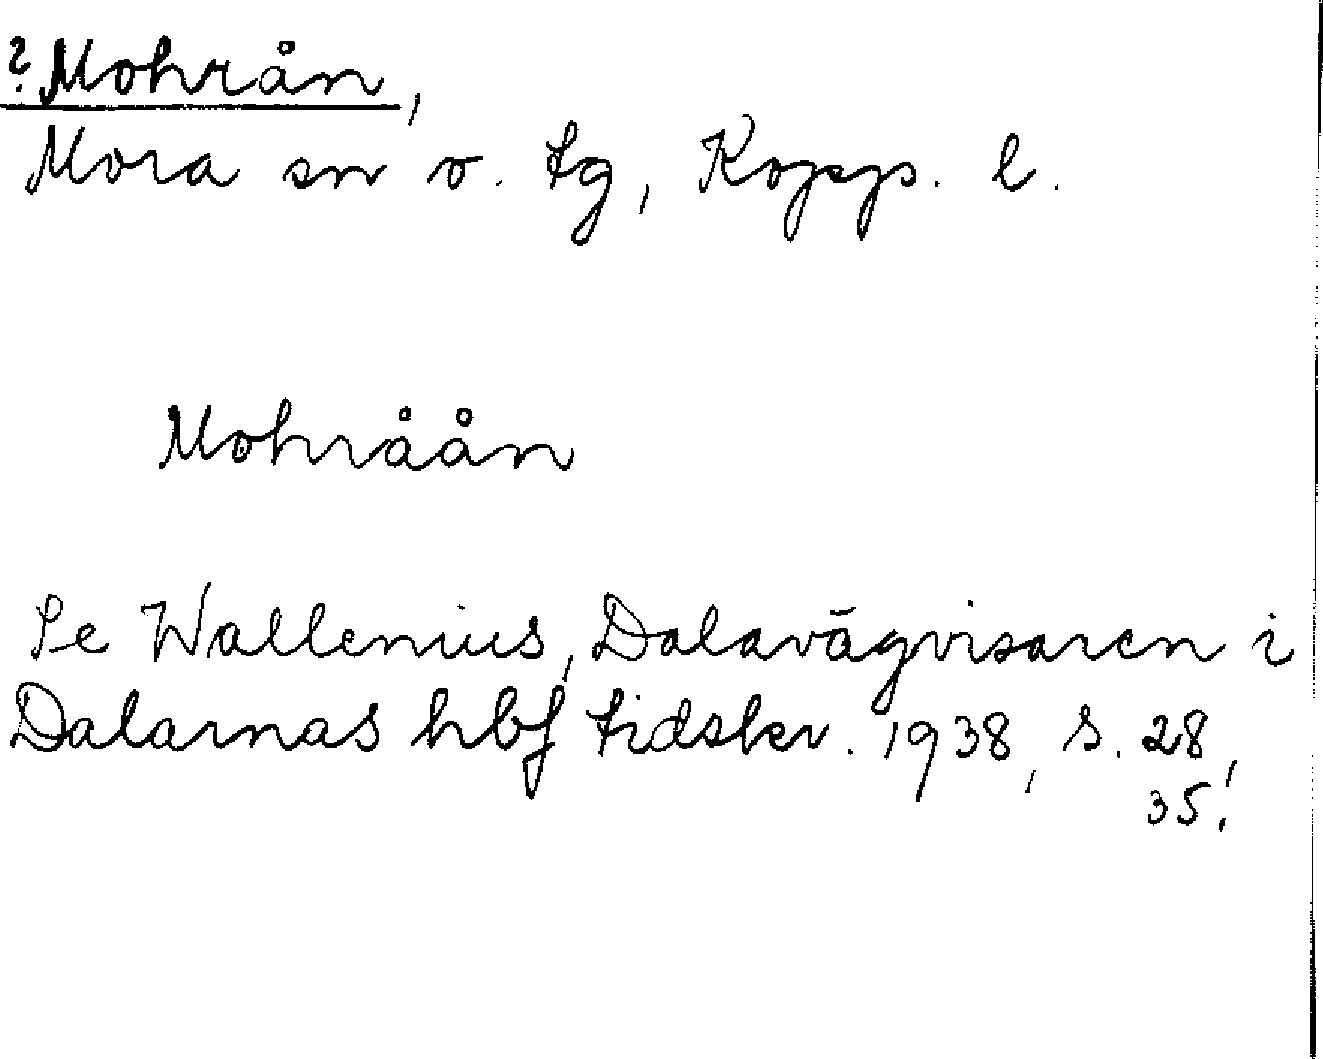 ?Mohrån,
Mora sn o. tg, Kopp. l.
Mohråån
Se Wallenius, Dalavägvisaren i
Dalarnas hbf tidskr. 1938, s. 28,
35.